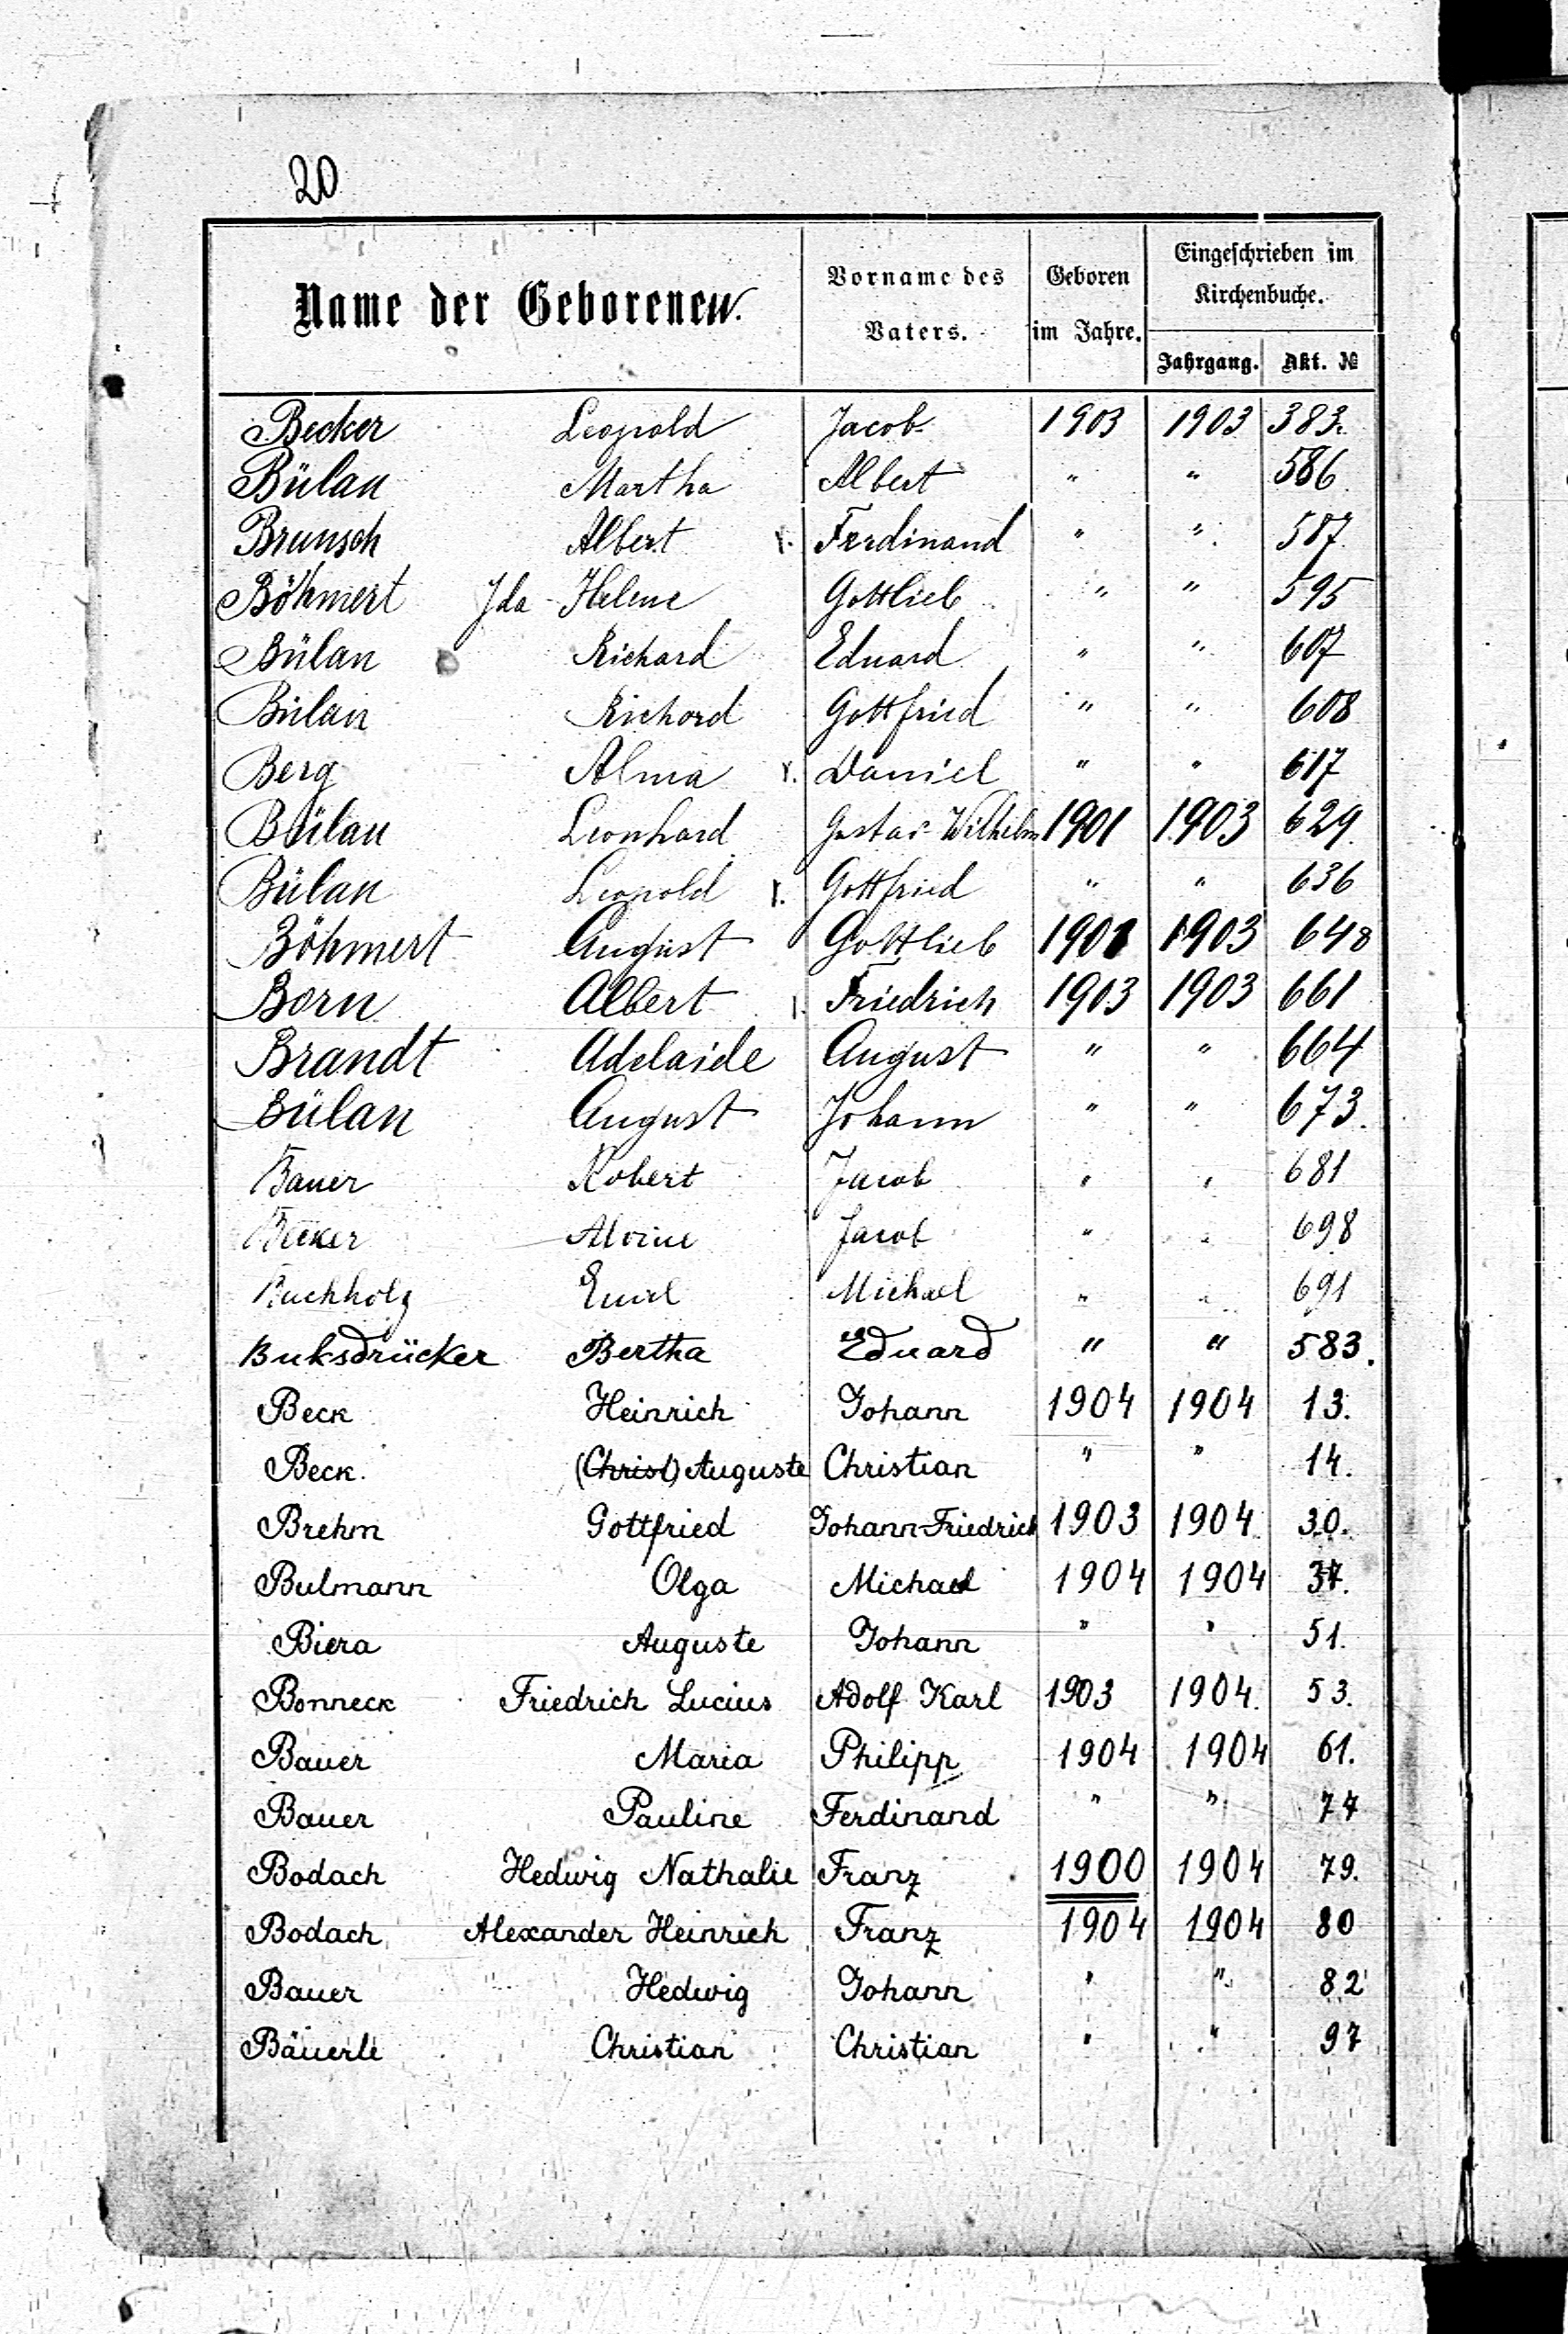 20
Name der Geborenen.
Vorname des Vaters.
Geboren im Jahre.
Eingeschrieben im Kirchenbuche.
Jahrgang. Akt. №
Becker Leopold Jacob 1903 1903 383.
Bülau Martha Albert " " 586
Brunsch Albert Ferdinand " " 587
Böhmert Ida Helene Gottlieb " " 595
Bülau Richard Eduard " " 607
Bülau Richard Gottfried " " 608
Berg Alma Daniel " " 617
Bülau Leonhard Gustav Wilhelm 1901 1903 629.
Bülau Leopold Gottfried " " 636
Böhmert August Gottlieb 1903 648
Born Albert Friedrich 1903 1903 661
Brandt Adelaide August " " 664
Bülau August Johann " " 673.
Bauer Robert Jacob " " 681
Becker Alvine Jacob " " 698
Buchholz Emil Michael " " 691
Buksdrücker Bertha Eduard " " 583.
Beck Heinrich Johann 1904 1904 13.
Beck. (Christ) Auguste Christian " " 14.
Brehm Gottfried Johann-Friedrich 1903 1904 30.
Bulmann Olga Michael 1904 1904 37.
Biera Auguste Johann " " 51.
Bonneck Friedrich Lucius Adolf Karl 1903 1904 53.
Bauer Maria Philipp 1904 1904 61.
Bauer Pauline Ferdinand " " 77
Bodach Hedwig Nathalie Franz 1900 1904 79.
Bodach Alexander Heinrich Franz 1904 1904 80
Bauer Hedwig Johann " " 82
Bäuerle Christian Christian " " 97